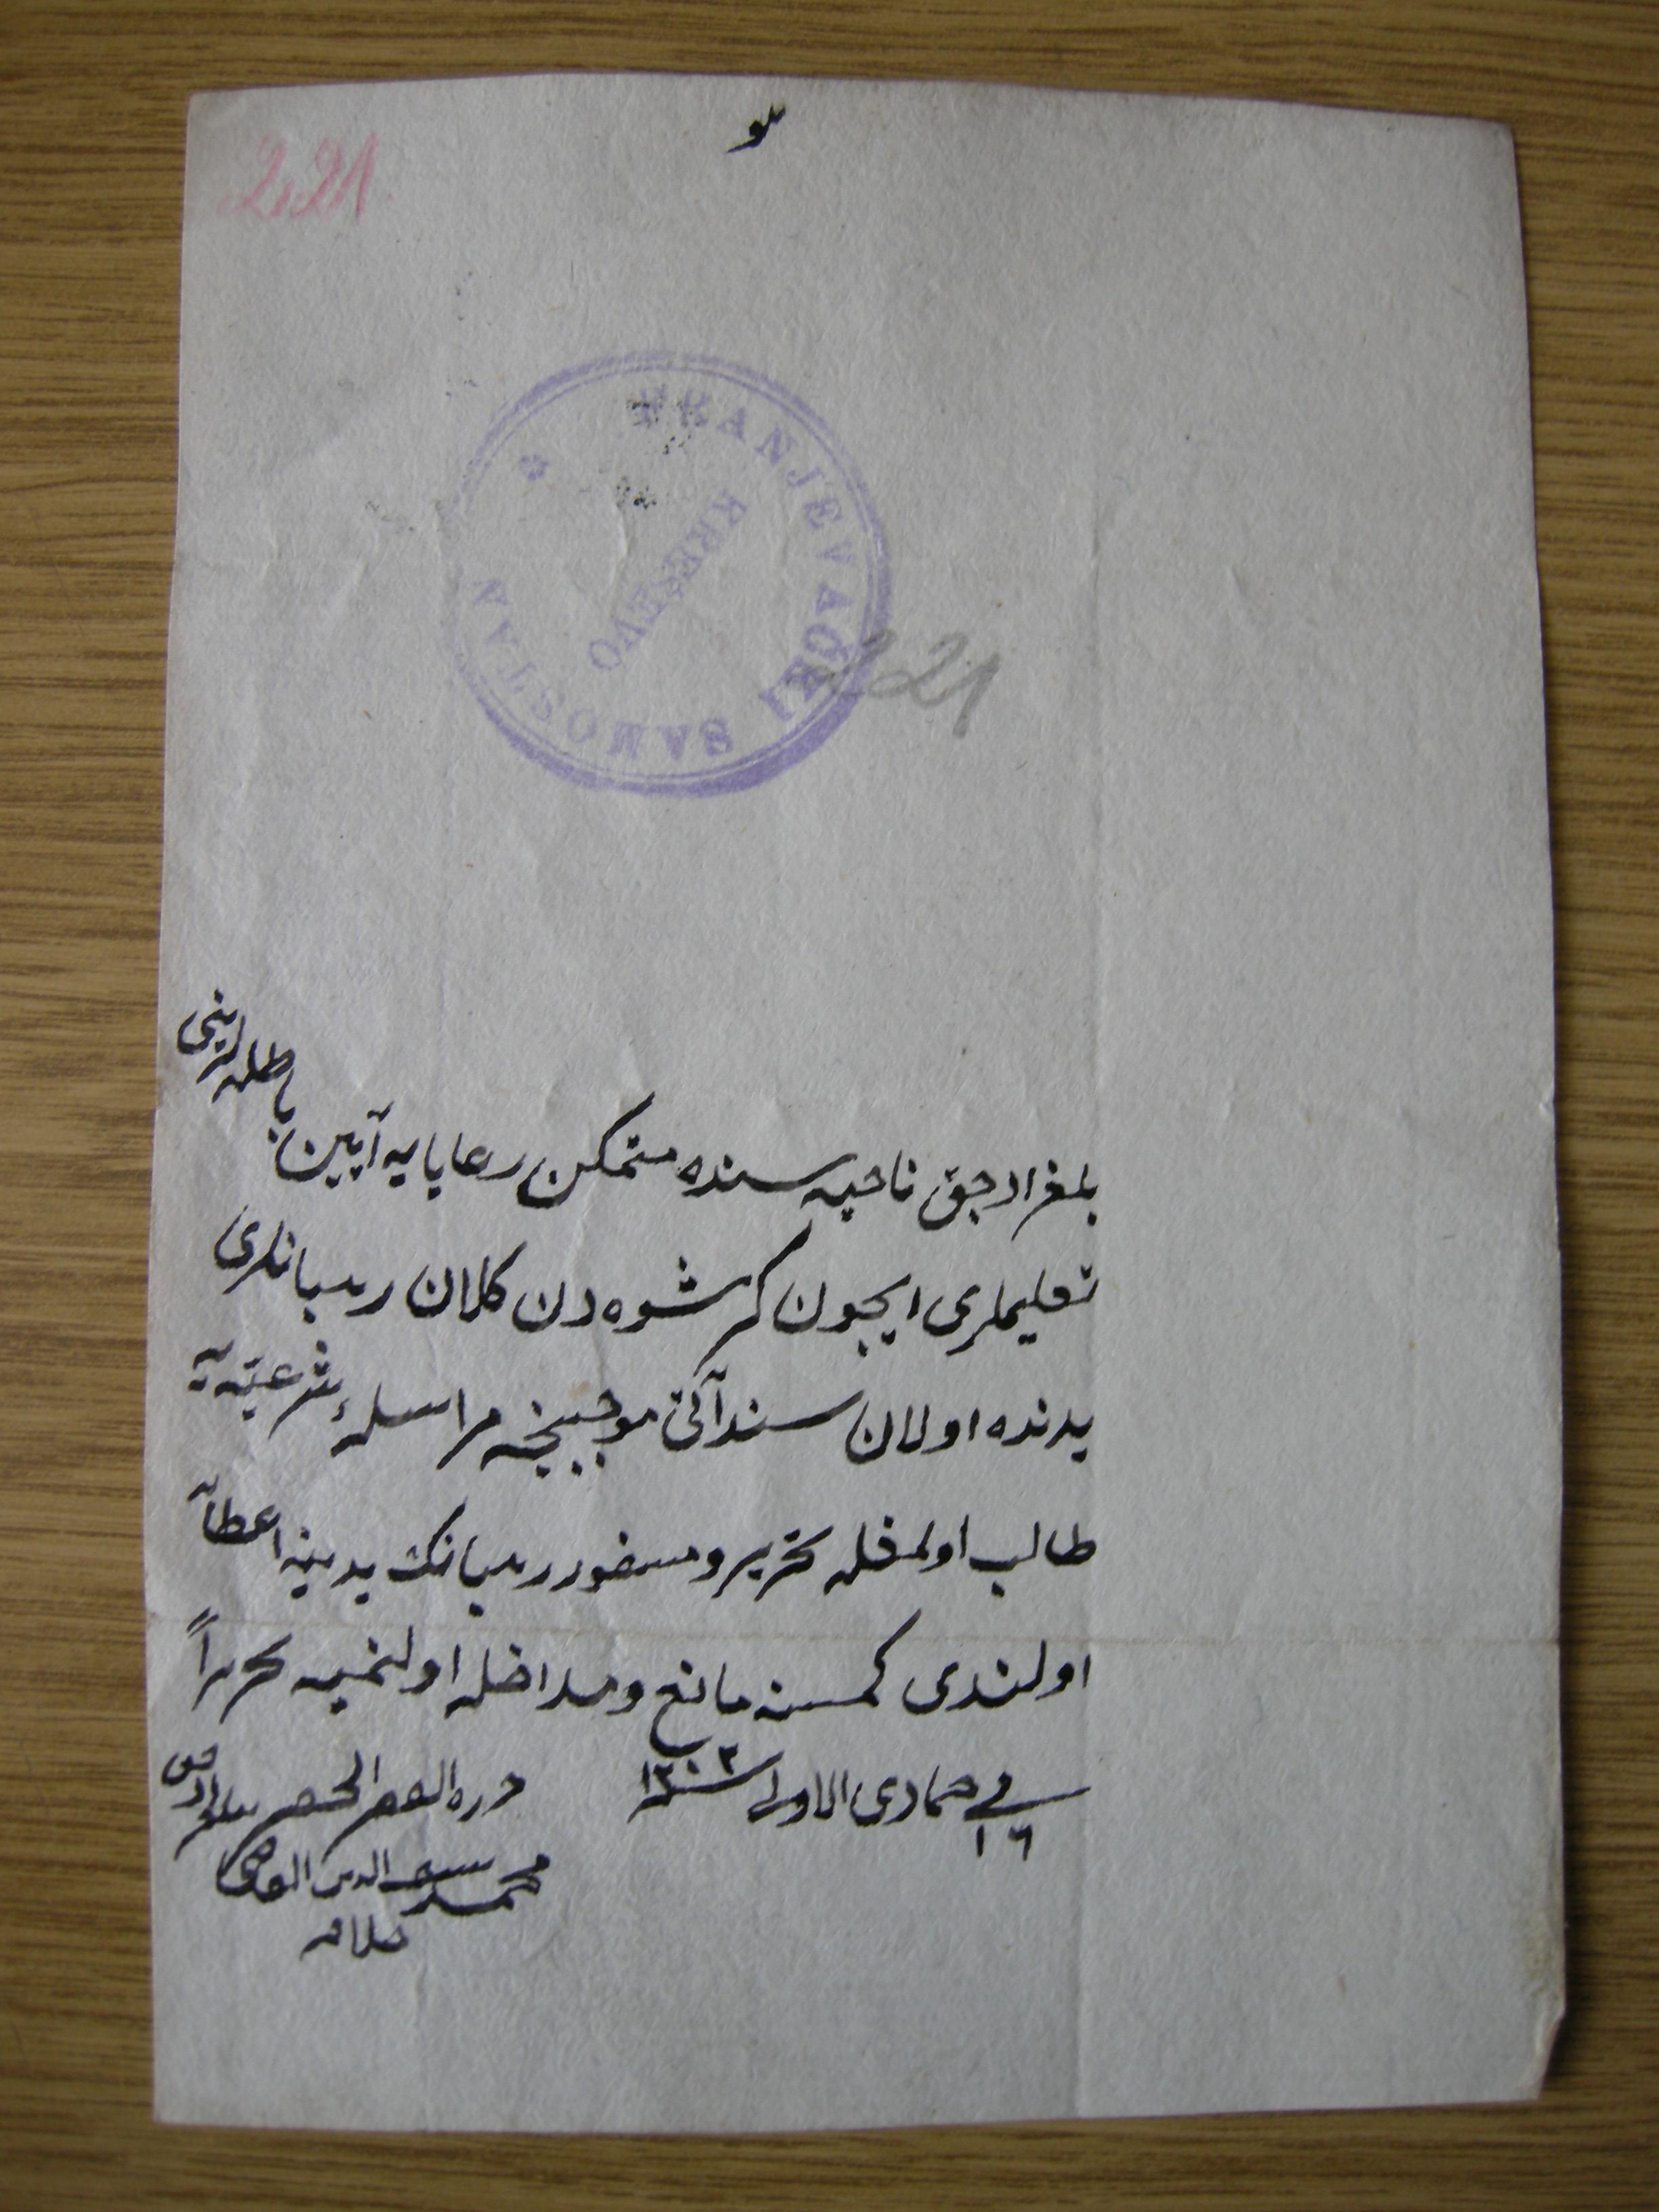 هو
221
FRANJEVAČKI SAMOSTAN
KREŠEVO
221
بلغرادجق ناحیه سنده متمكن رعایایه آیین باطله لرینی
تعلیملری ایچون كرشوه دن كلان رهبانلری
یدنده اولان سندآتی موجبنجه مراسلهٔ شرعیّه یه
طالب اولمغله تحریر و مسفور رهبانك یدینه اعطآ
اولندی كمسنه مانع و مداخله اولنمیه تحریراً
فی ١٦ جمادی الاولی سنه ١٢٠٣
حرره الفقیر الحقیر
محمد سیف الدین القاضی